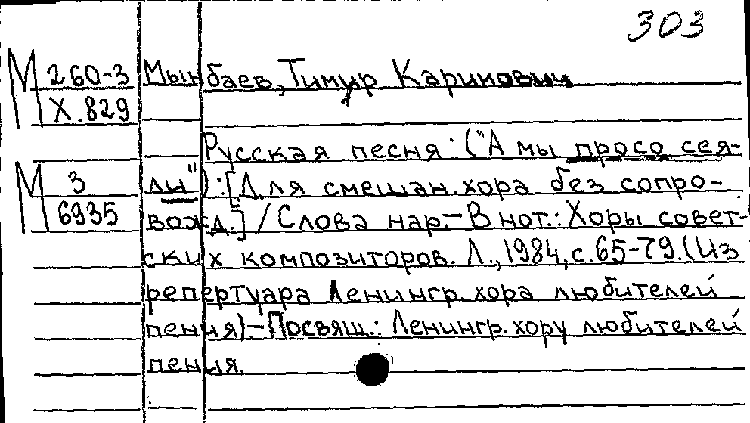 303
М 260-3 Мынбаев, Тимур Каримович
Х.829
Русская песня: ("А мы просо сея-
М 3 ли"): [Для смешан. хора без сопро-
6935 вожд.] / Слова нар.- В нот.: Хоры совет-
ских композиторов. Л., 1984, с. 65-79. (Из
репертуара Ленингр. хора любителей
пения).- Посвящ.: Ленингр. хору любителей
пения.